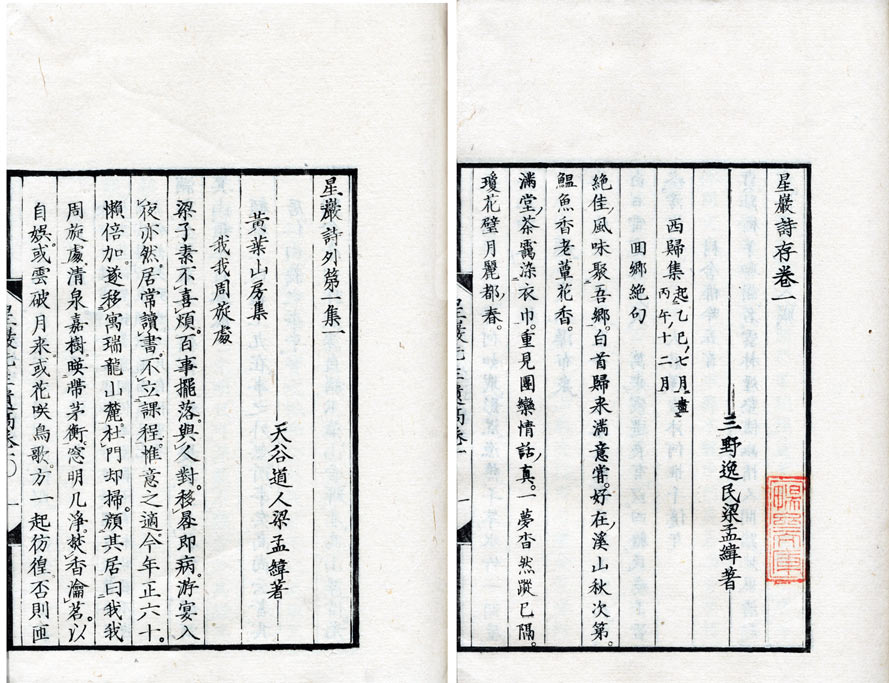 星巖詩存卷一
三野逸民梁孟緯著
西歸集 起乙巳七月盡
丙午十二月
回郷絶句
絶佳風味聚吾郷。白首歸来満意嘗。好在溪山秋次第。
鰮魚香老蕈花香。
満堂茶靄衣巾。重見團欒情話真。一夢杳然蹤已隔。
瓊花璧月麗都春。
星巖詩外第一集
黃葉山房集
天谷道人梁孟緯著
我我周旋處
梁子素不喜煩。百事擺落。與人對移晷即病。游宴入
夜亦然。居常讀書不立課程。惟意之適。今年正六十。
懶倍加。遂移寓瑞龍山麓。杜門却掃。顏其居曰我我
周旋處。清泉嘉樹暎帶茅衡。窓明几淨。焚香瀹茗。以
自娯。或雲破月来。或花咲鳥歌。方一起彷徨。否則匝